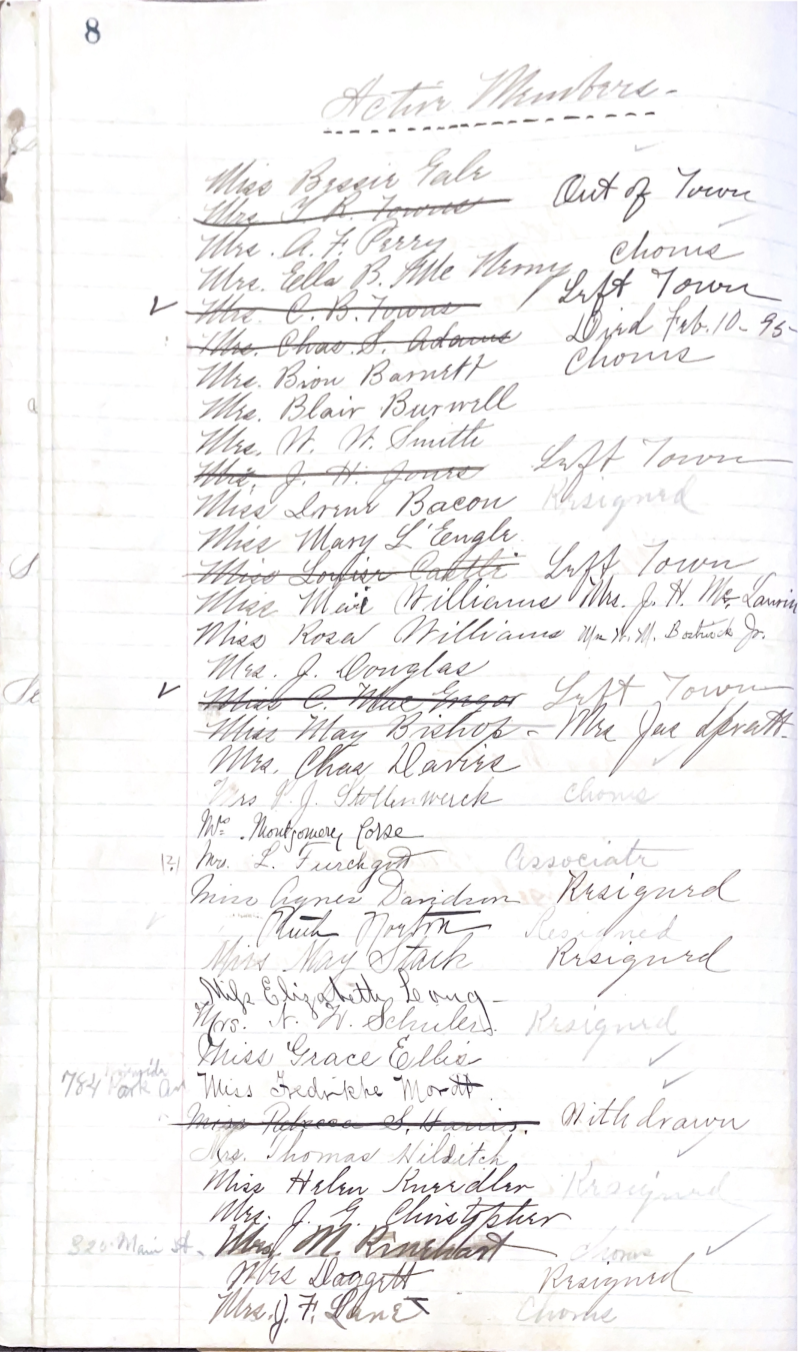 8
Active Members-
Miss Bessie Gale
Mrs. T. R. Towns Out of Town
Mrs. A. F. Perry
Mrs. Ella B. Mc Nemy Chorus
Mrs. C. B. Towns Left Town
Mrs. Chas. S. Adams Died Feb. 10-95-
Mrs. Bion Barnett Chorus
Mrs. Blair Burwell
Mrs. W. W. Smith
Mrs. J. H. Jones Left Town
Miss Irene Bacon Resigned
Miss Mary L'Engle
Miss Louise Left Town
Miss Mai Williams Mrs. J. H. Mc
Miss Rosa Williams W. M. Bostwick Jr.
Mrs. J. Douglas
Miss C. Mae Left Town
Miss May Bishop - Mrs Jas Spratt.
Mrs. Chas Davies
Mrs J. Stollenwerck Chorus
Mrs. Montgomery Corse
(?) Mr. L. Furchgott Associate
Miss Agnes Davidson Resigned
Ruth Norton Resigned
Miss May Stark Resigned
Miss Elizabeth Long-
Mrs. N. W. Schuler. Resigned
Miss Grace Ellis
784 Park Av Miss Fredrikke Mordt.
Miss Rebecca S. Harris. Withdrawn
Mrs. Thomas Hilditch
Miss Helen Kneedler Resigned
Mrs. J. G. Christopher
Main St. Mrs. M. Rinehart Chorus
Mrs Doggett Resigned
Mrs. J. F. Lane Chorus